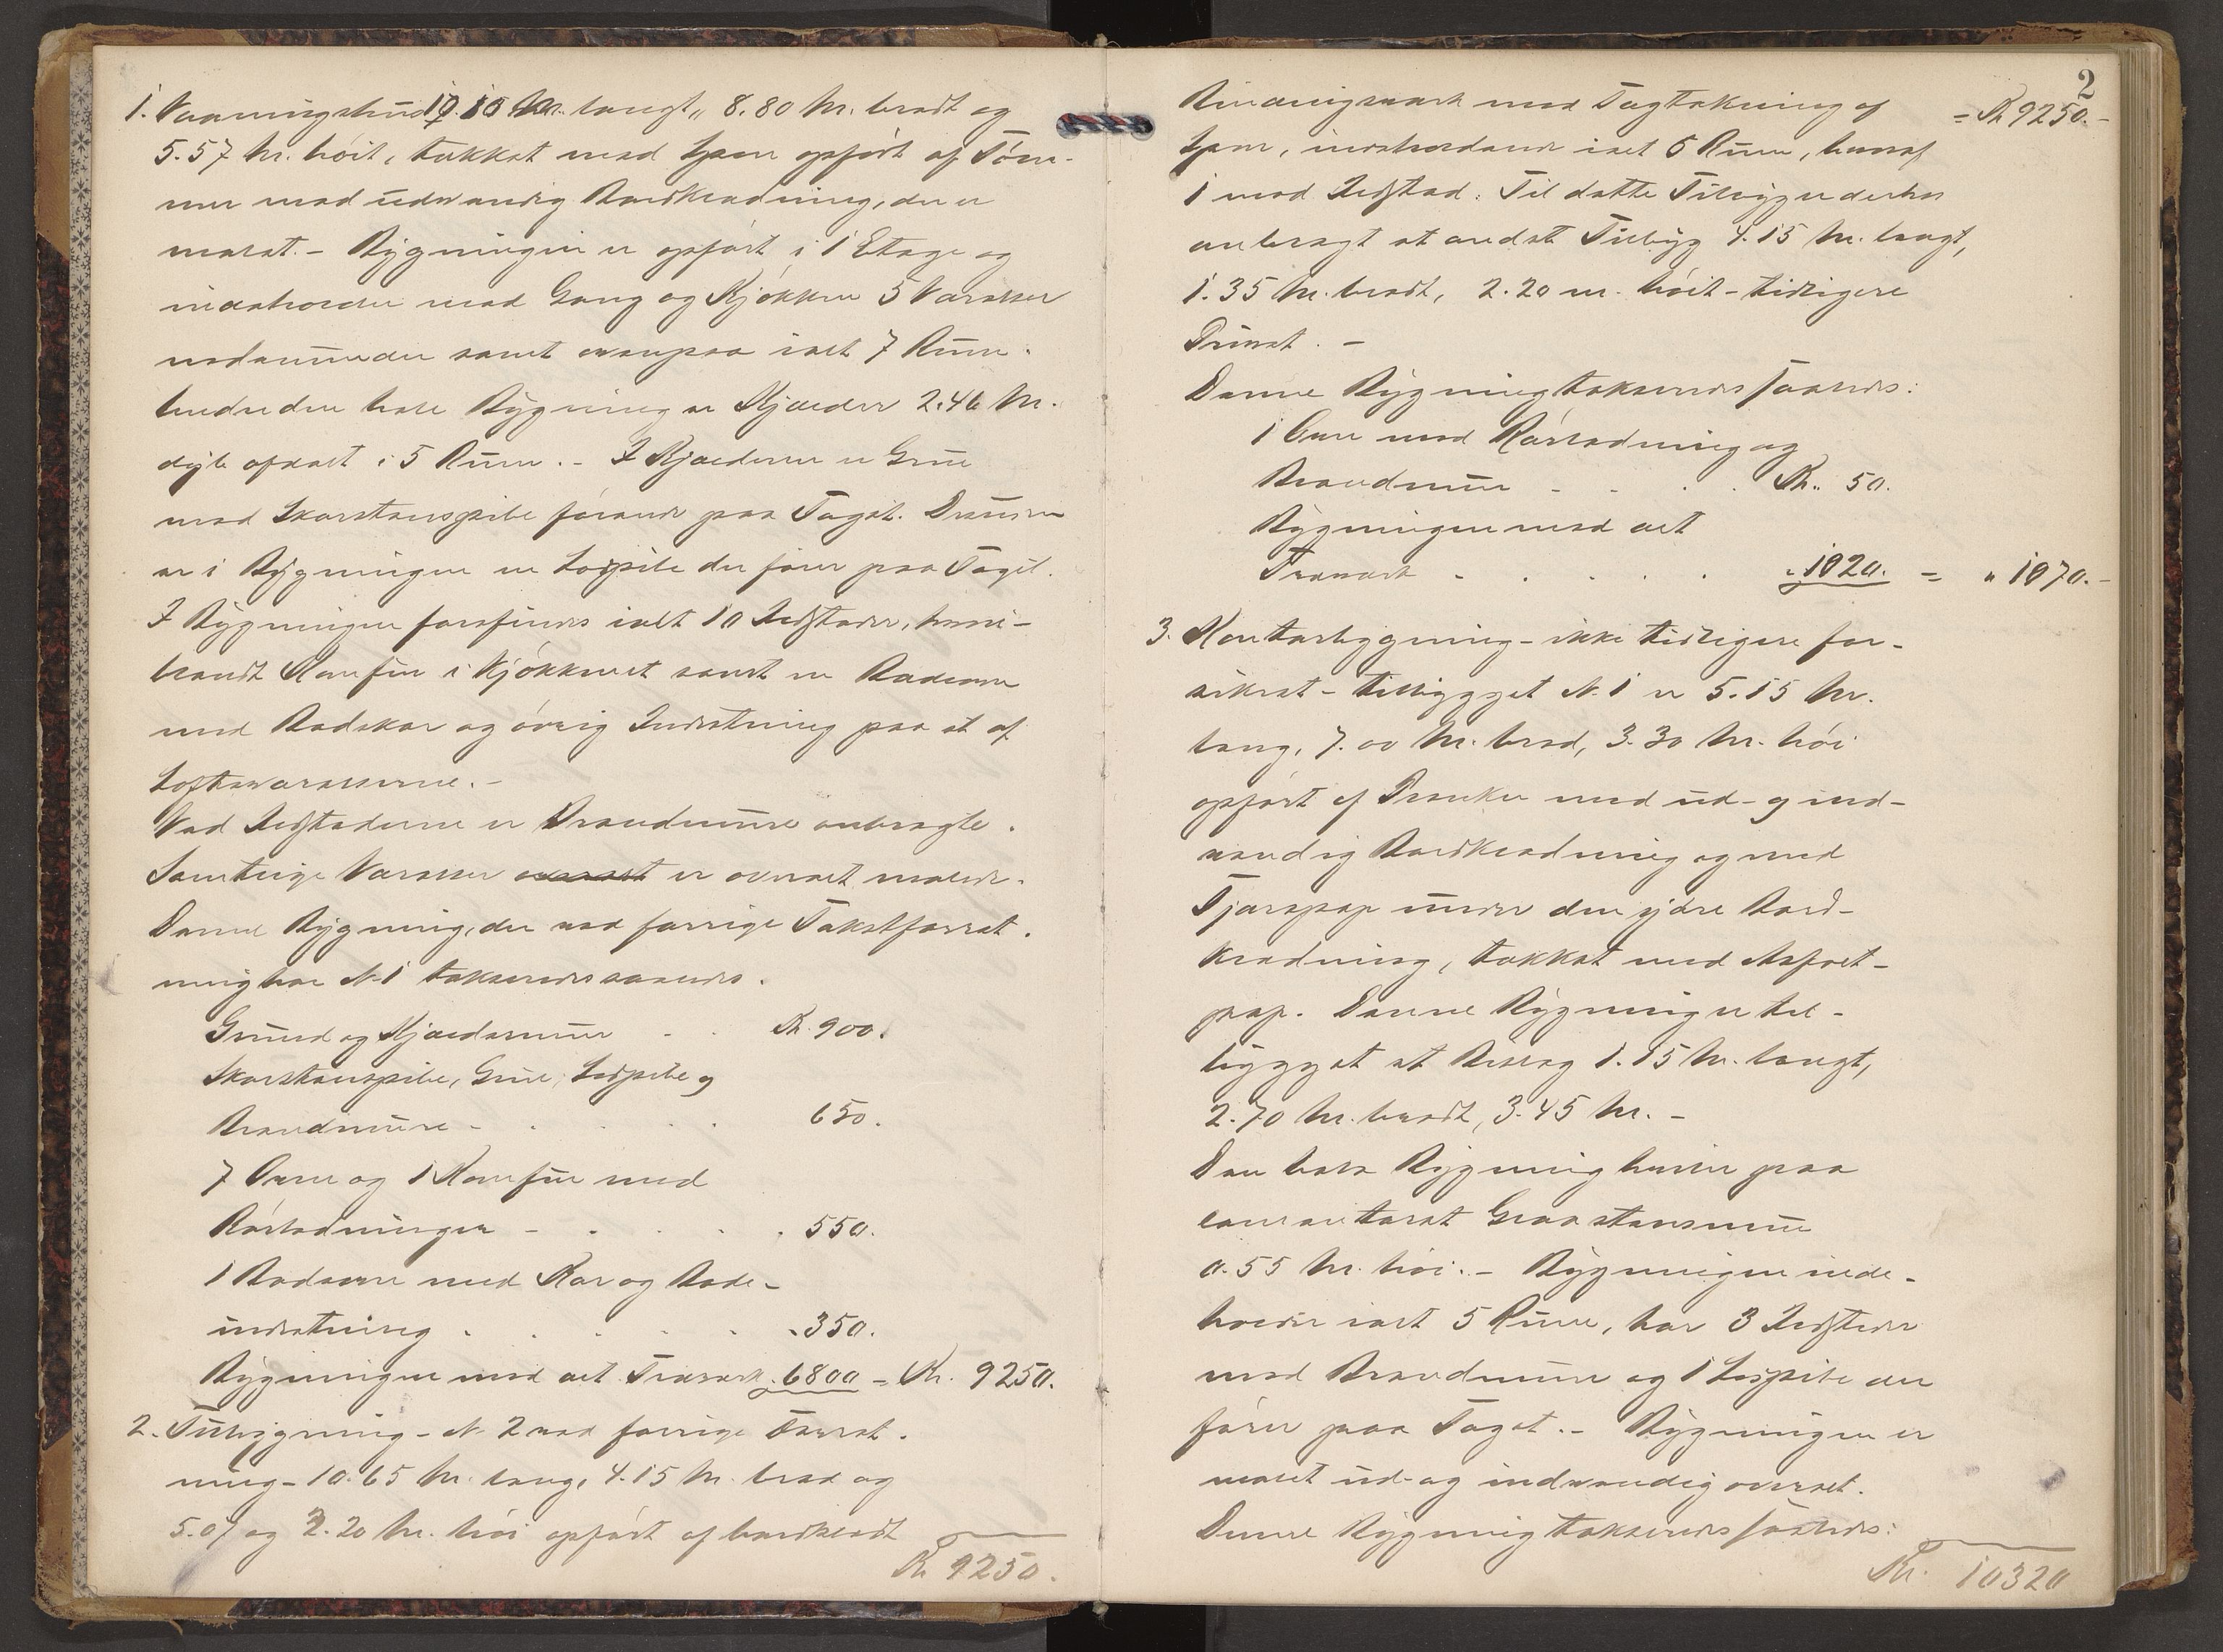 1. Vaaningshus 10.10 M. langt, 8.80 M. bredt og
5.57 M. höit, tækket med Spon opført af Töm-
mer med udvændig Bordklædning, der er
malet. - Bygningen er opført i 1 Etage og
indeholder med Gang og Kjøkken 5 Værelser
nedenunder samt ovenpaa ialt 7 Rum.
Under den hele Bygning er Kjælder 2.46 M.
dyb afdelt i 5 Rum. - I Kjælderen er Grue
med Skorstenspibe förende paa Taget. Desuden
er i Bygningen en Løspibe der fører paa Taget.
I Bygningen forefindes ialt 10 Ildsteder, heri-
blandt Komfur i Kjøkkenet samt en Badeovn
med Badekar og øvrig Indretning paa et af
Loftsværelserne. -
Ved Ildstederne er Brandmure anbragte.
Samtlige Værelser overalt er overalt malede.
Denne Bygning, der ved forrige Takstforret.
ning har N. 1 takseredes saaledes.
Grund og Kjældermur Kr. 900.
Skorstenspibe, Grue, Løspibe og
Brandmure 650.
7 Ovne og 1 Komfur med
Rørledninger 550.
1 Badeovn med Kar og Bade-
indretning 350.
Bygningen med alt Træværk 6800 = Kr. 9250.
2. Tilbygning - N. 2 ved forrige Forret.
ning - 10.65 M. lang, 4.15 M. bred og
5.07 og 2.20 M. høi opført af bordklædt
Kr. 9250.
2
Bindingsværk med Tagtækning af = Kr. 9250.-
Spon, indeholdende ialt 5 Rum, hvoraf
1 med Ildsted. Til dette Tilbyg er derhos
anbragt et andet Tilbyg 4.15 M. langt,
1.35 M. bredt, 2.20 m. höit - tidligere
Privet. -
Denne Bygning takseredes saaledes:
1 Ovn med Rørledning og
Brandmur Kr. 50.
Bygningen med alt
Træværk 1020. = " 1070.-
3. Kontorbygning - ikke tidligere for-
sikret - tilbygget N. 1 er 5.15 M.
lang, 7.00 M. bred, 3.30 M. höi
opført af Planker med ud- og ind-
vendig Bordklædning og med
Tjærepap under den ydre Bord-
klædning, tækket med Asfalt-
pap. Denne Bygning er til-
bygget et Bislag 1.15 M. langt,
2.70 M. bredt, 3.45 M. -
Den hele Bygning hviler paa
cementeret Graastensmur
0.55 M. höi. - Bygningen inde-
holder ialt 5 Rum, har 3 Ildsteder
med Brandmure og 1 Løspibe der
förer paa Taget. - Bygningen er
malet ud- og indvendig overalt.
Denne Bygning takseredes saaledes:
Kr. 10320